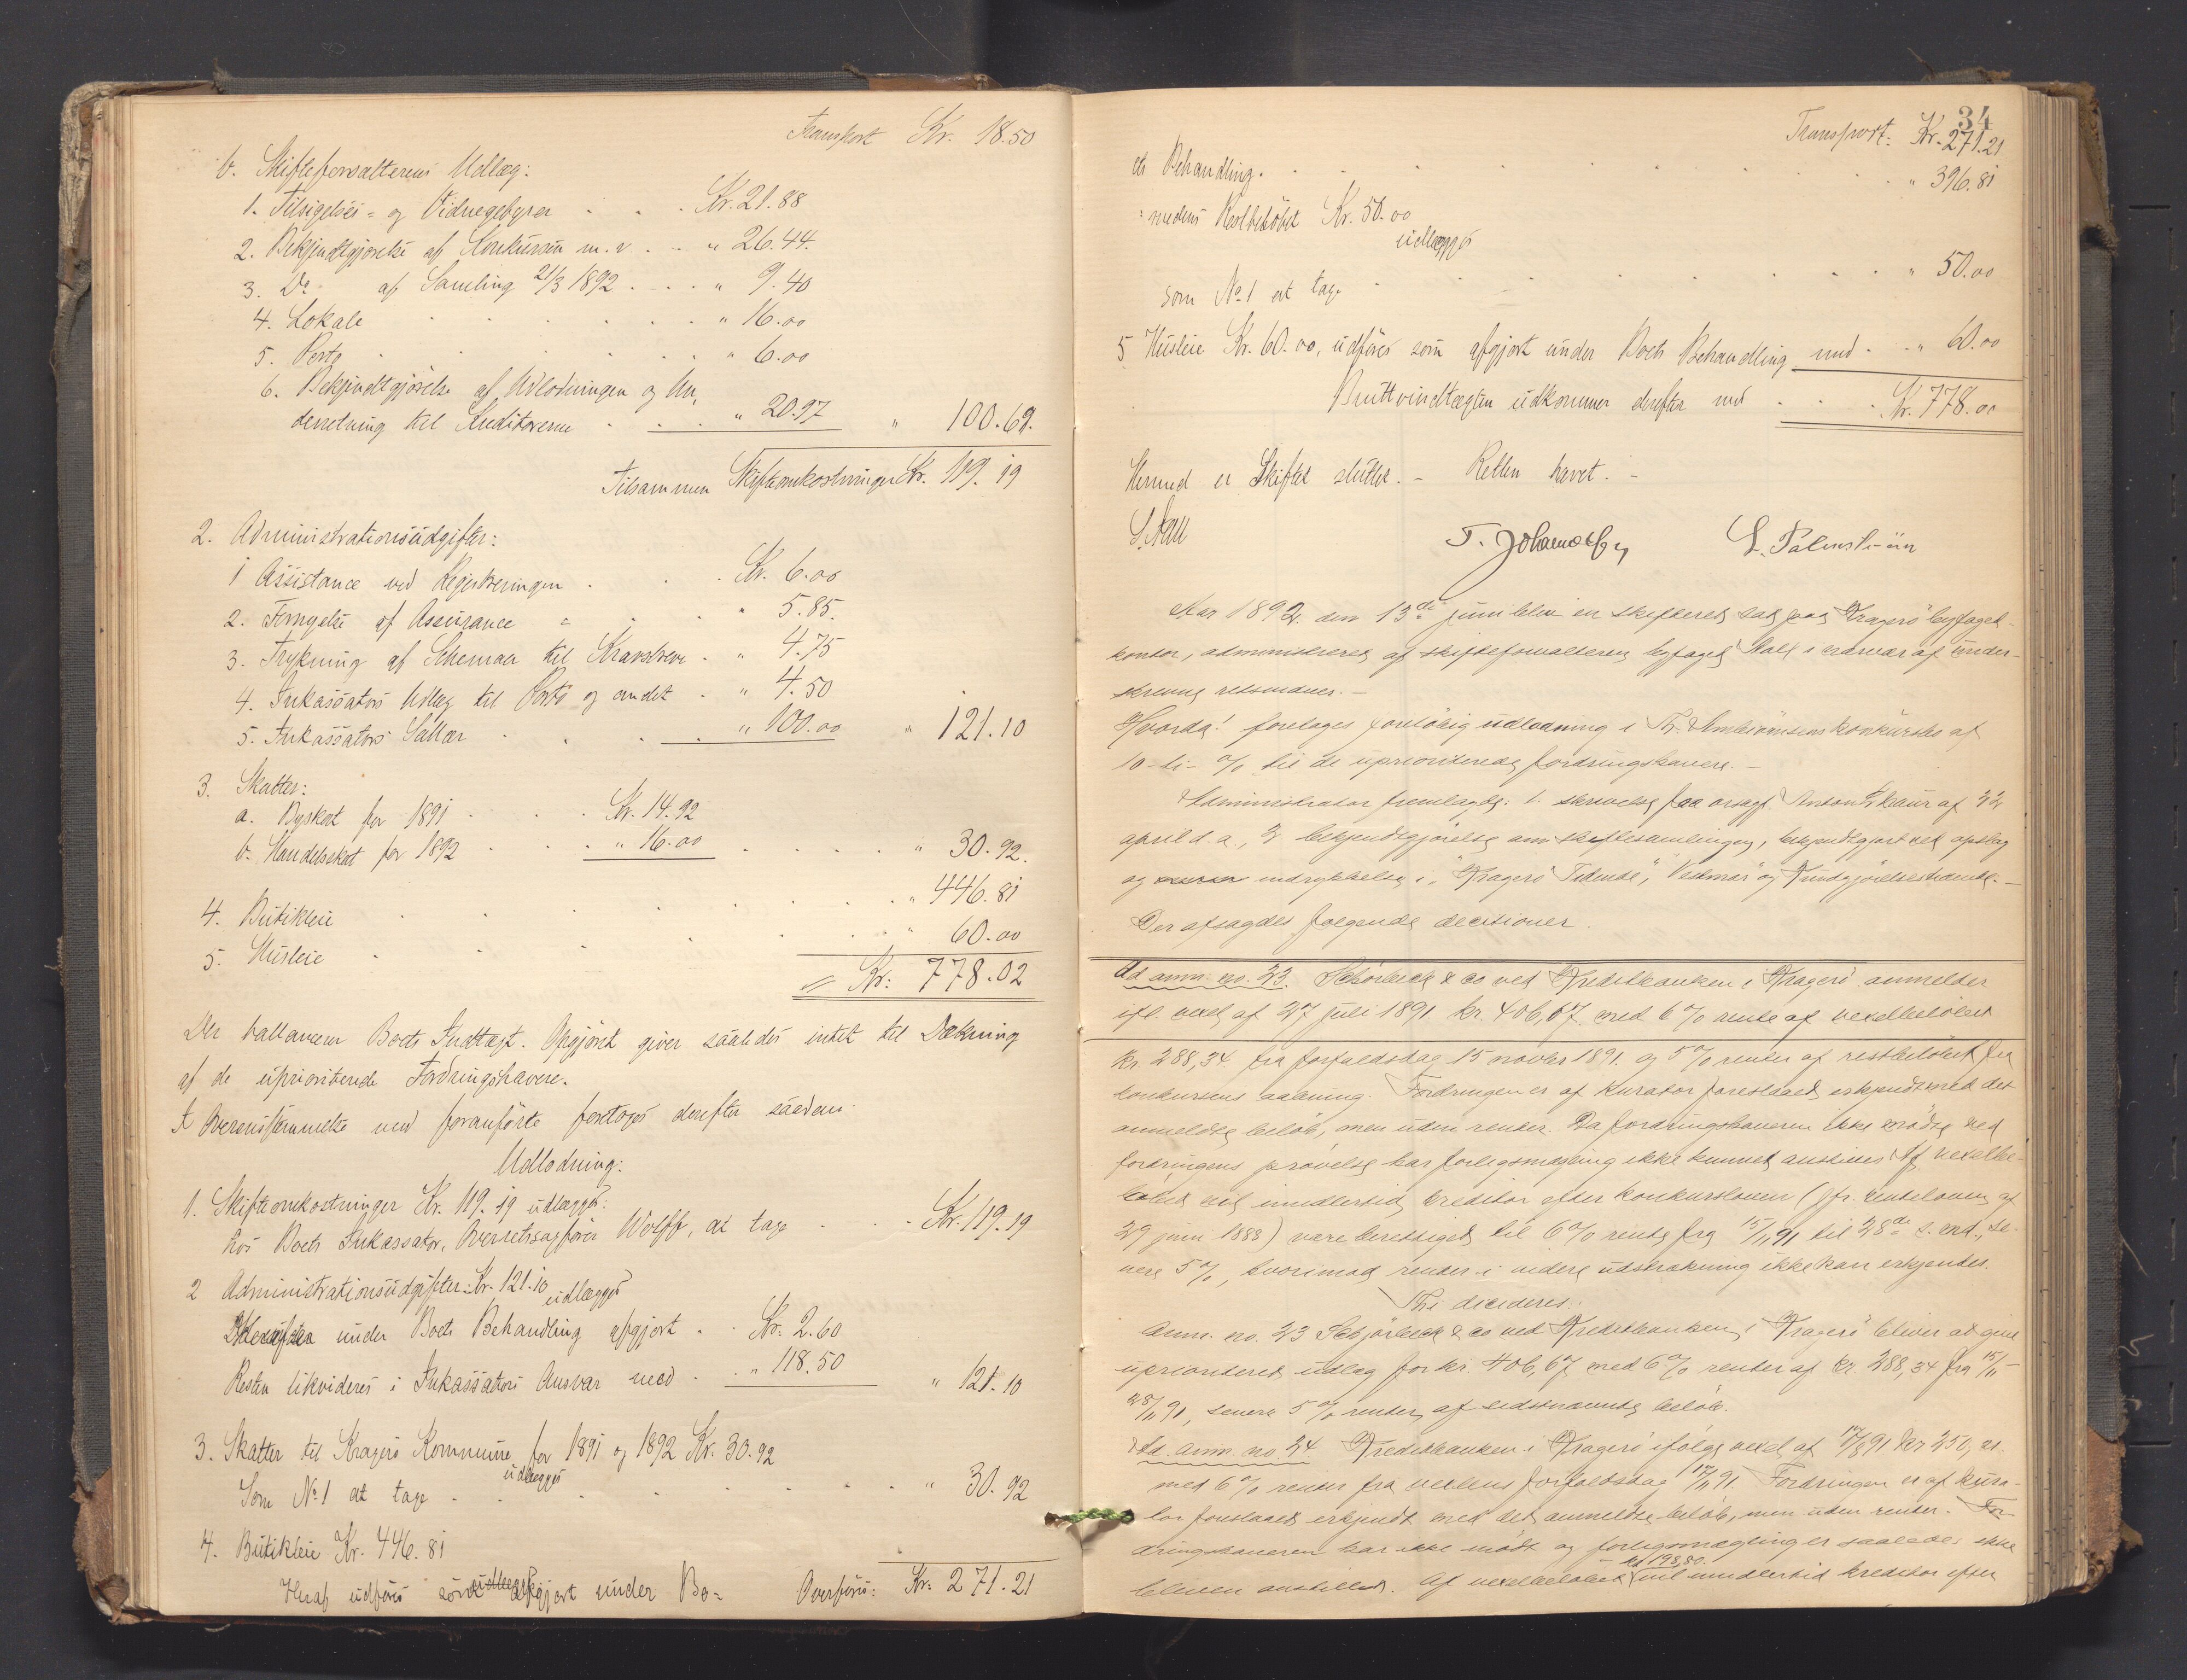 Transport Kr. 18.50
b. Skifteforvalterens Udlæg:
1. Tilsigelses- og Vidnegebyrer . . . Kr. 21.88
2. Bekjendtgjørelse af Konkursen m.v. . . " 26.44.
3. Do. af Samling 21/3 1892 . . . " 9.40
4. Lokale . . . " 16.00
5. Porto . . . " 6.00
6. Bekjendtgjørelse af Udlodningen og Un-
derretning til Kreditorerne . . . " 20.97 " 100.69.
Tilsammen Skifteomkostninger Kr. 119.19
2. Administrationsudgifter:
1 Assistance ved Registreringen . . . Kr. 6.00
2. Fornyelse af Assurance . . " 5.85.
3. Trykning af Schemaer til Kravsbreve . " 4.75
4. Inkassators Udlæg til Porto og andet . " 4.50
5. Inkassators Sallær . . . " 100.00 " 121.10
3. Skatter:
a. Byskat for 1891 . . . Kr. 14.92
b. Handelsskat for 1892 . . . " 16.00 . . . " 30.92.
4. Butikleie . . . " 446.81
5. Husleie . . . " 60.00
Kr: 778.02
Der ballancerer Boets Indtægt. Opgjøret giver saaledes intet til Dækning
af de uprioriterede Fordringshavere.
I Overensstemmelse med foranførte foretoges derefter saadan
Udlodning:
1. Skifteomkostninger Kr. 119.19 udlægges:
hos Boets Inkassator, Overretssagfører Wolff, at tage . . . Kr. 119.19
2 Administrationsudgifter: Kr. 121.10 udlægges
under Boets Behandling afgjort . . Kr. 2.60
Resten likvideres i Inkassators Ansvar med . . . " 118.50 " 121.10
3. Skatter til Kragerø Kommune for 1891 og 1892 Kr. 30.92
udlægges
Som No. 1 at tage . . . " 30.92
4. Butikleie Kr. 446.81
Heraf udføres som afgjort under Bo- Overføres: Kr: 271.21
34
Transport: Kr. 271.21
ets Behandling. . . . " 396.81
medens Restbeløbet Kr. 50.00
udlægges
som No. 1 at tage . . . " 50.00
5 Husleie Kr. 60.00, udføres som afgjort under Boets Behandling med . . " 60.00
Bruttoindtægten udkommer derefter med . . . Kr. 778.00
Hermed er Skiftet sluttet. – Retten hævet. –
S. Hall T. Johannesen L. Palmstrøm
Aar 1892 den 13de juni blev en skifteret sat paa Kragerø byfoged-
kontor, administreret af skifteforvalteren byfoged Hall i nærvær af under-
skrevne retsvidner. –
Hvorda! foretoges foreløbig udlodning i Th. konkursbo af
10 – ti – % til de uprioriterede fordringshavere. –
Administrator fremlagde: 1. skrivelse fra orsagf. Anton af 22
april d. a., 2 bekjendtgjørelse om skiftesamlingen, bekjendtgjort ved opslag
og indrykkelse i "Kragerø Tidende", "Vestmar" og Kundgjørelsestidende. –
Der afsagdes følgende decisioner.
Ad anm. no. 23. & co ved Kreditbanken i Kragerø anmelder
ifl. vexel af 27 juli 1891 kr. 406,67 med 6 % rente af vexelbeløbet
kr. 288,34 fra forfaldsdag 15 novbr 1891 og 5 % renter af restbeløbet fra
konkursens aabning. Fordringen er af Kurator foreslaaet erkjendt med det
anmeldte beløb, men uden renter. Da fordringshaveren ikke mødte ved
fordringens prøvelse har forligsmægling ikke kunnet anstilles. Af vexelbe-
løbet vil imidlertid kreditor efter konkursloven (jfr. renteloven af
29 juni 1888) være berettiget til 6 % rente fra 15/11 91 til 28de s. md., se-
nere 5 %, hvorimod renter i videre udstrækning ikke kan erkjendes.
Thi decideres:
Anm. no. 23 & co ved Kreditbanken i Kragerø bliver at give
uprioriteret udlæg for kr. 406,67 med 6 % renter af kr. 288,34 fra 15/11 –
28/11 91, senere 5 % renter af sidstnævnte beløb.
Ad. anm. no 24 Kreditbanken i Kragerø ifølge vexel af 17/8 91 kr 250,
med 6 % renter fra vexlens forfaldsdag 17/11 91. Fordringen er af kura-
tor foreslaaet erkjendt med det anmeldte beløb, men uden renter. For-
dringshaveren har ikke mødt og forligsmægling er saaledes ikke
bleven anstillet. Af vexelbeløbet kr 198,80. vil imidlertid kreditor efter